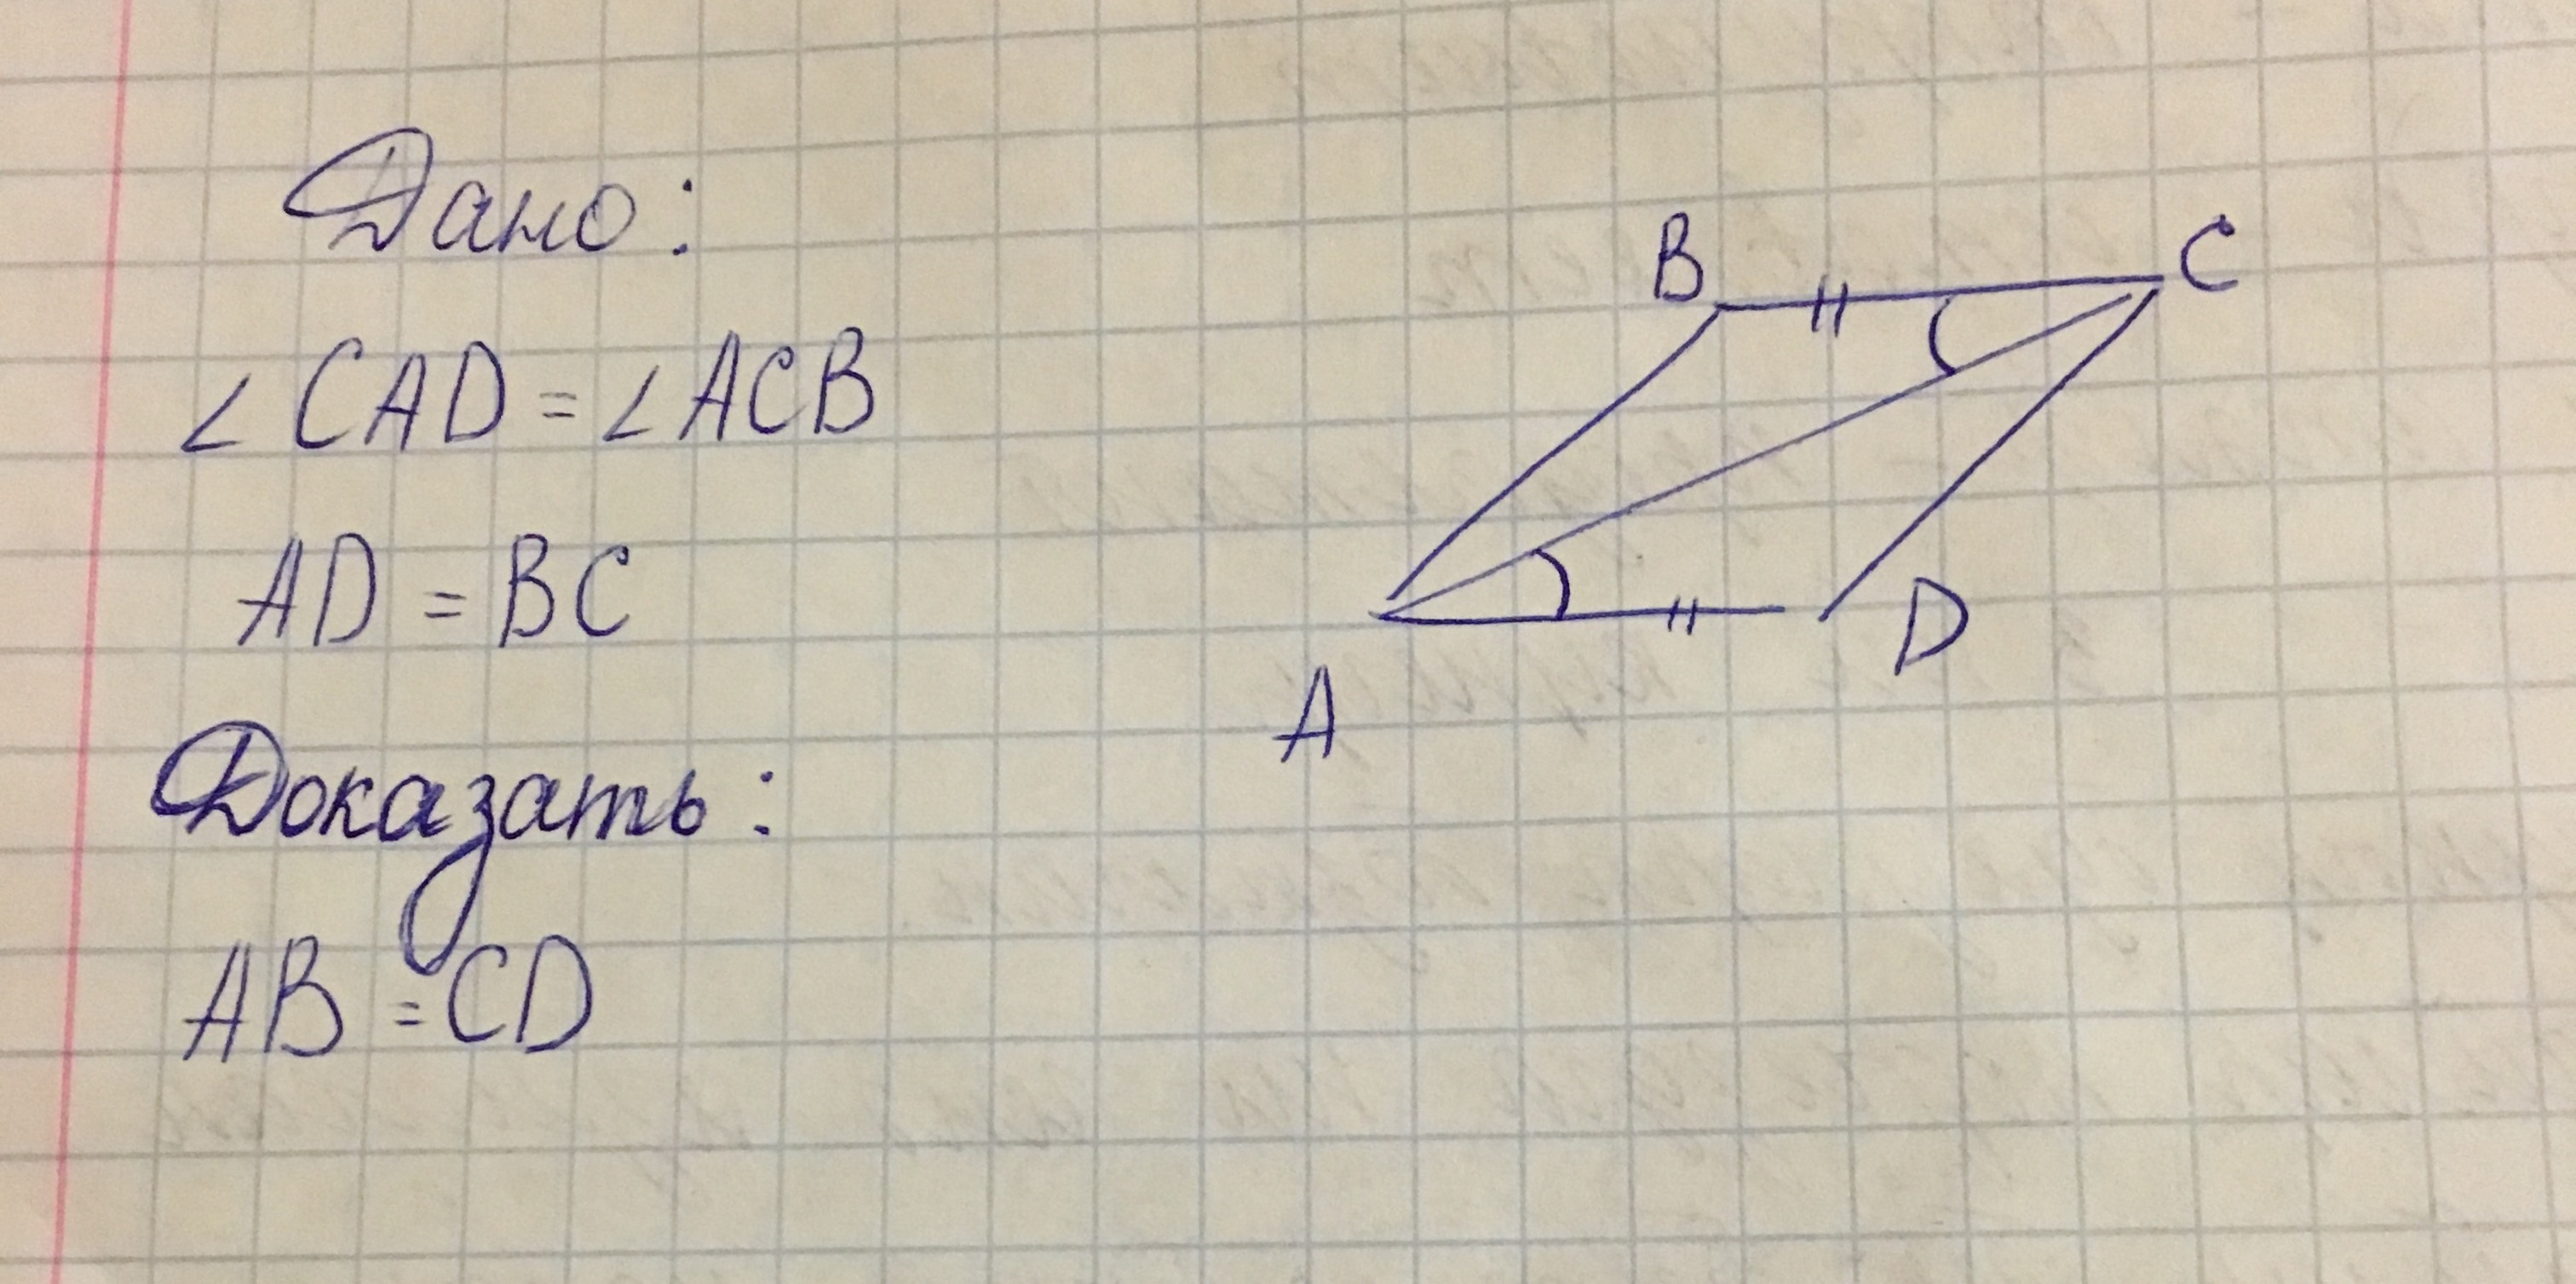 Дано:
∠CAD = ∠ACB
AD = BC
Доказать:
AB = CD
B
C
A
D